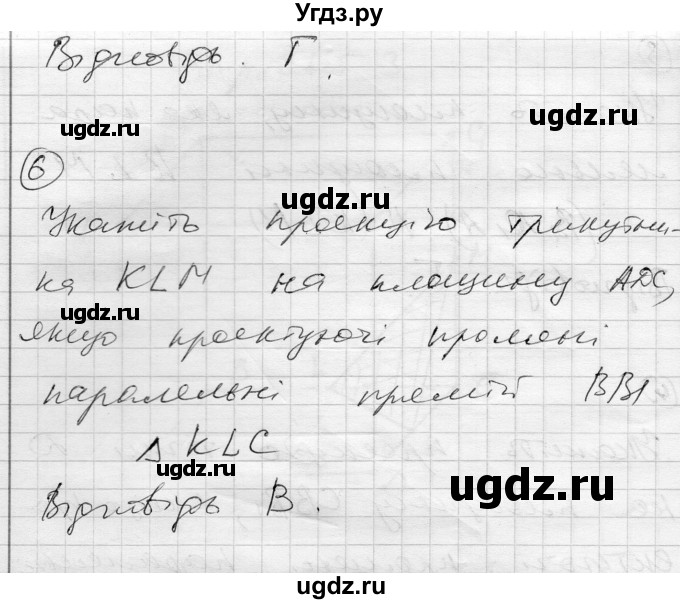 Угдз.ру
Відповідь. Г.
ugdz.ru
ugdz.ru
6
ugdz.ru
Укажіть проекцію трикутни-
ка KLM на площину ADC,
ugdz.ru
якщо проектуючі промені
паралельні прямій BB1
△ KLC
ugdz.ru
ugdz.ru
Відповідь В.
ugdz.ru